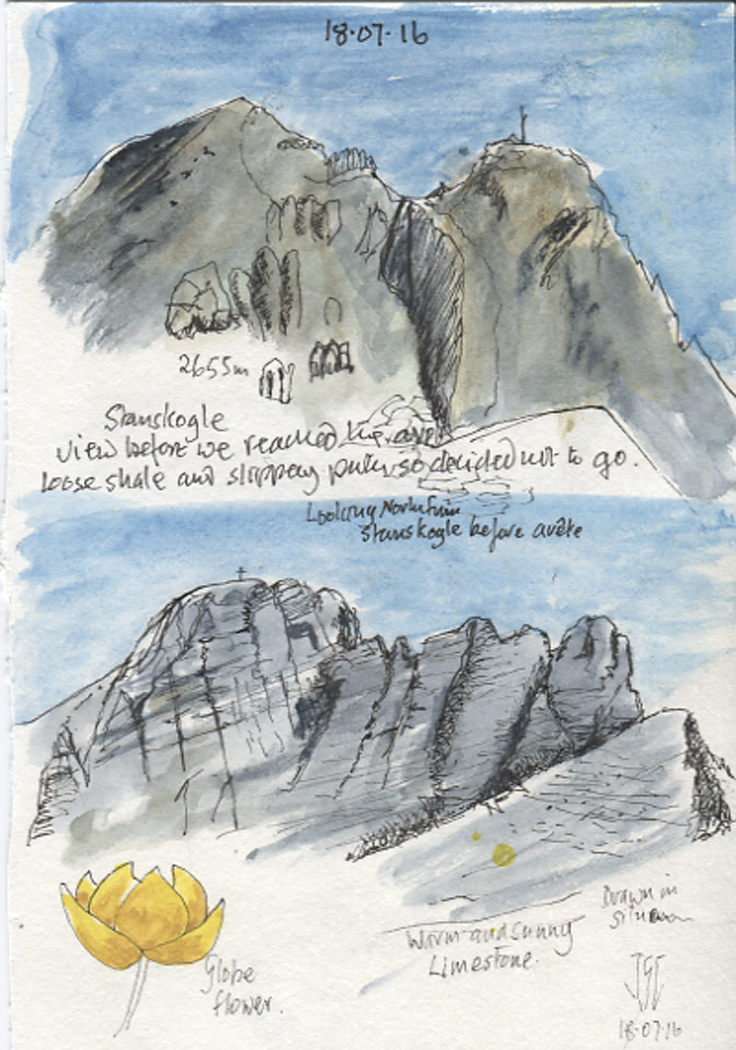 18·07·16
2655m
Stanskogle
view before we reached the arete
loose shale and slippery path so decided not to go.
Looking North from
Stanskogle before arête
Globe
flower.
Warm and sunny
Limestone.
Drawn in
18·07·16